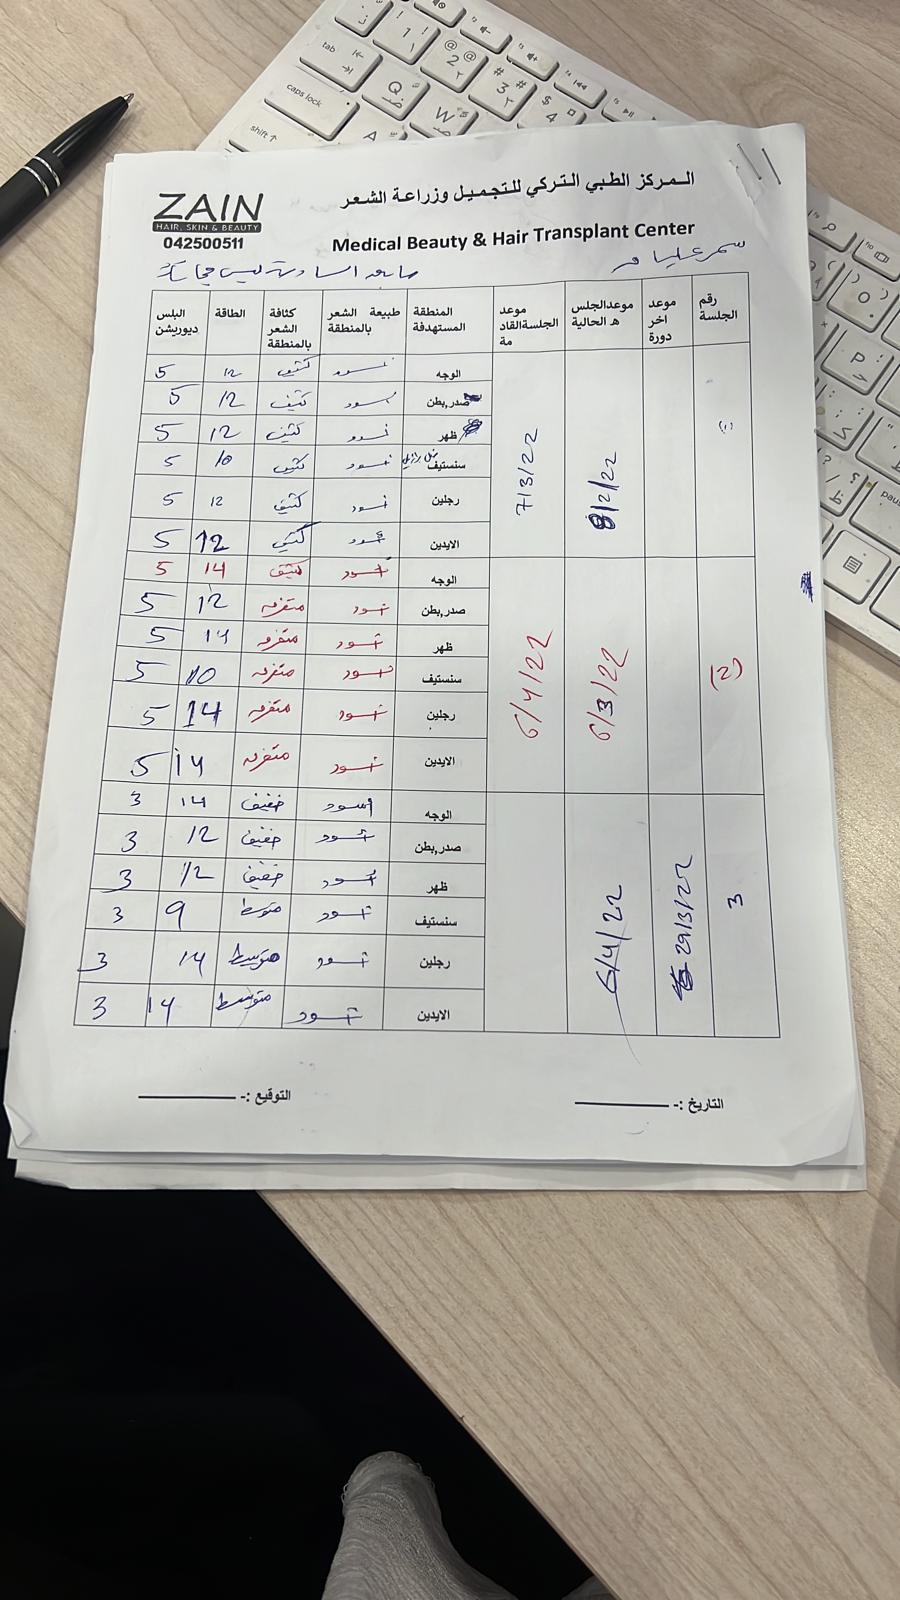 المركز الطبي التركي للتجميل وزراعة الشعر
ZAIN
HAIR, SKIN & BEAUTY
042500511
Medical Beauty & Hair Transplant Center
سمر
رقم الجلسة موعد اخر دورة موعدالجلسه الحالية موعد الجلسةالقادمة المنطقة المستهدفة طبيعة الشعر بالمنطقة كثافة الشعر بالمنطقة الطاقة البلس ديوريشن
(1) 8/2/22 7/3/22
الوجه اسود كثيف 12 5
صدر,بطن اسود كثيف 12 5
ظهر اسود كثيف 12 5
سنستيف اسود كثيف 10 5
رجلين اسود كثيف 12 5
الايدين اسود كثيف 12 5
(2) 6/3/22 6/4/22
الوجه اسود كثيف 14 5
صدر,بطن اسود متفرقه 12 5
ظهر اسود متفرقه 14 5
سنستيف اسود متفرقه 10 5
رجلين اسود متفرقه 14 5
الايدين اسود متفرقه 14 5
3 29/3/22 6/4/22
الوجه اسود خفيف 14 3
صدر,بطن اسود خفيف 12 3
ظهر اسود خفيف 12 3
سنستيف اسود متوسط 9 3
رجلين اسود متوسط 14 3
الايدين اسود متوسط 14 3
التاريخ :- التوقيع :-